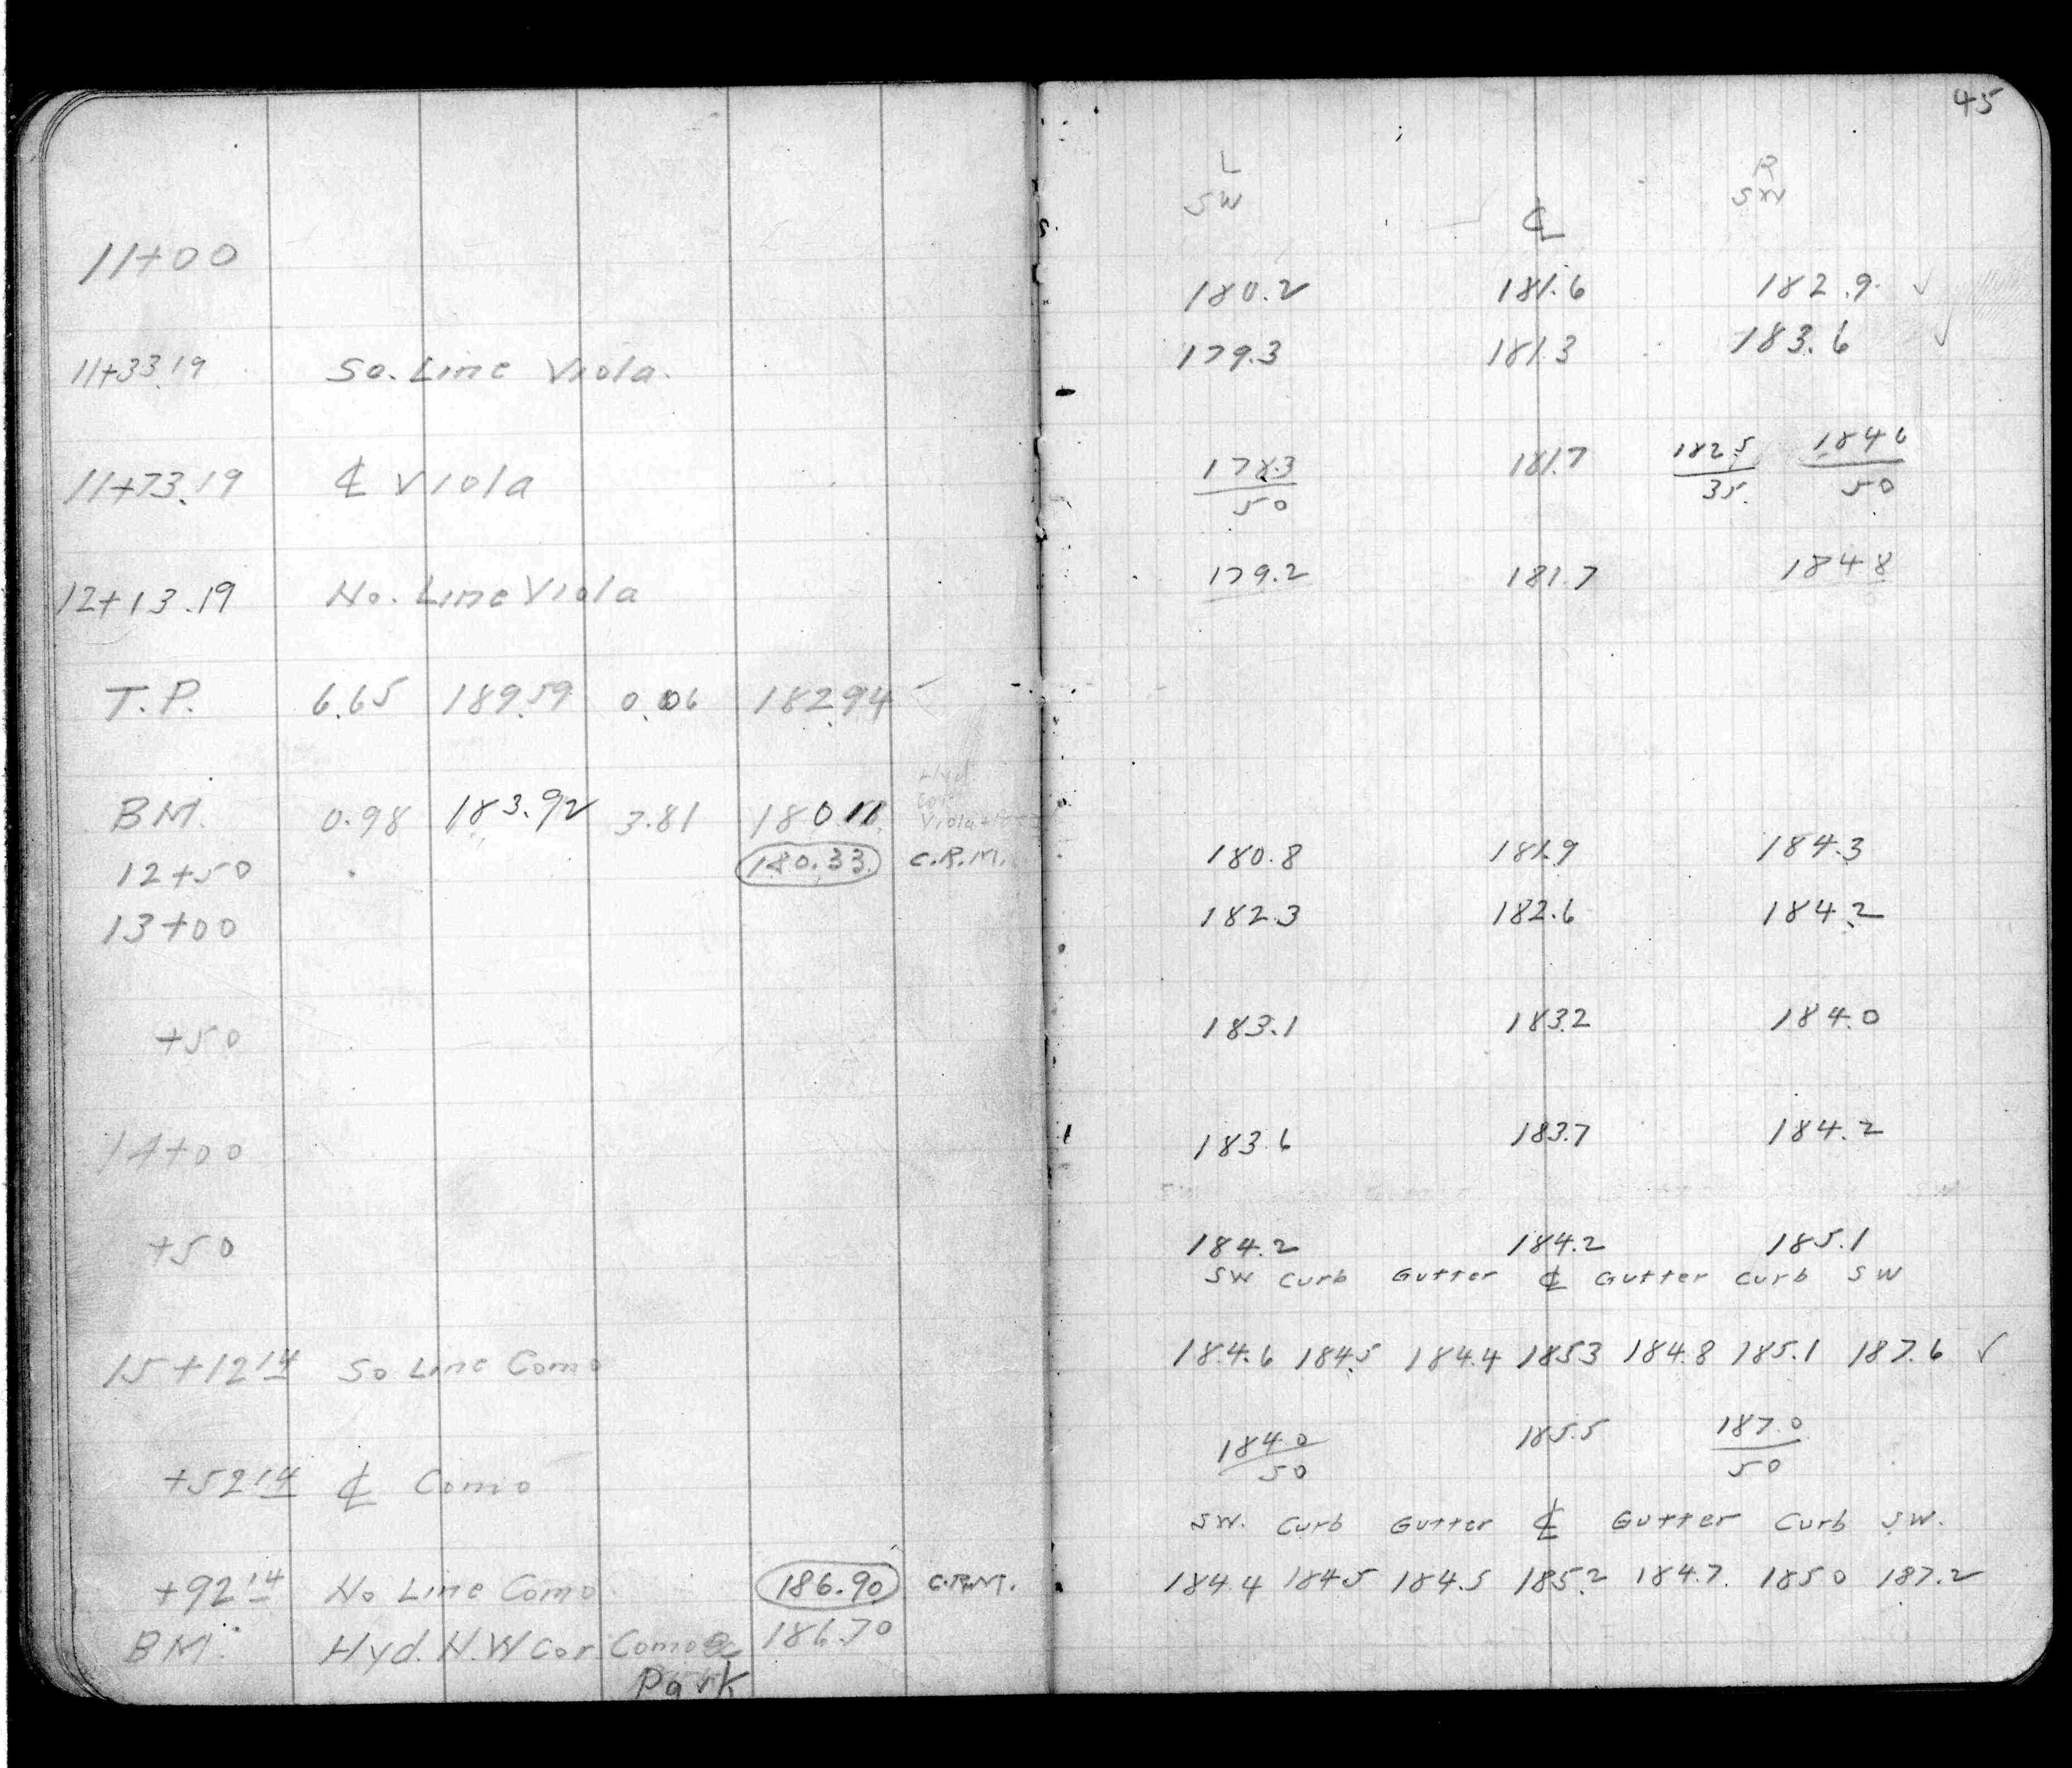 45
L R
SW ℄ SW
11+00 180.2 181.6 182.9 ✓
11+33.19 So. Line Viola. 179.3 181.3 183.6 ✓
11+73.19 ℄ Viola 178.3/50 181.7 182.5/35. 184.6/50
12+13.19 No. Line Viola 179.2 181.7 184.8
T.P. 6.65 189.59 0.06 182.94
BM. 0.98 183.92 3.81 180.11 Hyd. Cor. Viola
12+50 180.33 C.R.M. 180.8 181.9 184.3
13+00 182.3 182.6 184.2
+50 183.1 183.2 184.0
14+00 183.6 183.7 184.2
+50 184.2 184.2 185.1
SW Curb Gutter ℄ Gutter Curb SW
15+12 14 So Line Como 184.6 184.5 184.4 185.3 184.8 185.1 187.6 ✓
+52 14 ℄ Como 184.0/50 185.5 187.0/50
SW. Curb Gutter ℄ Gutter Curb SW.
+92 14 No Line Como 186.90 C.R.M. 184.4 184.5 184.5 185.2 184.7. 185.0 187.2
BM. Hyd. N.W Cor Como & 186.70
Park